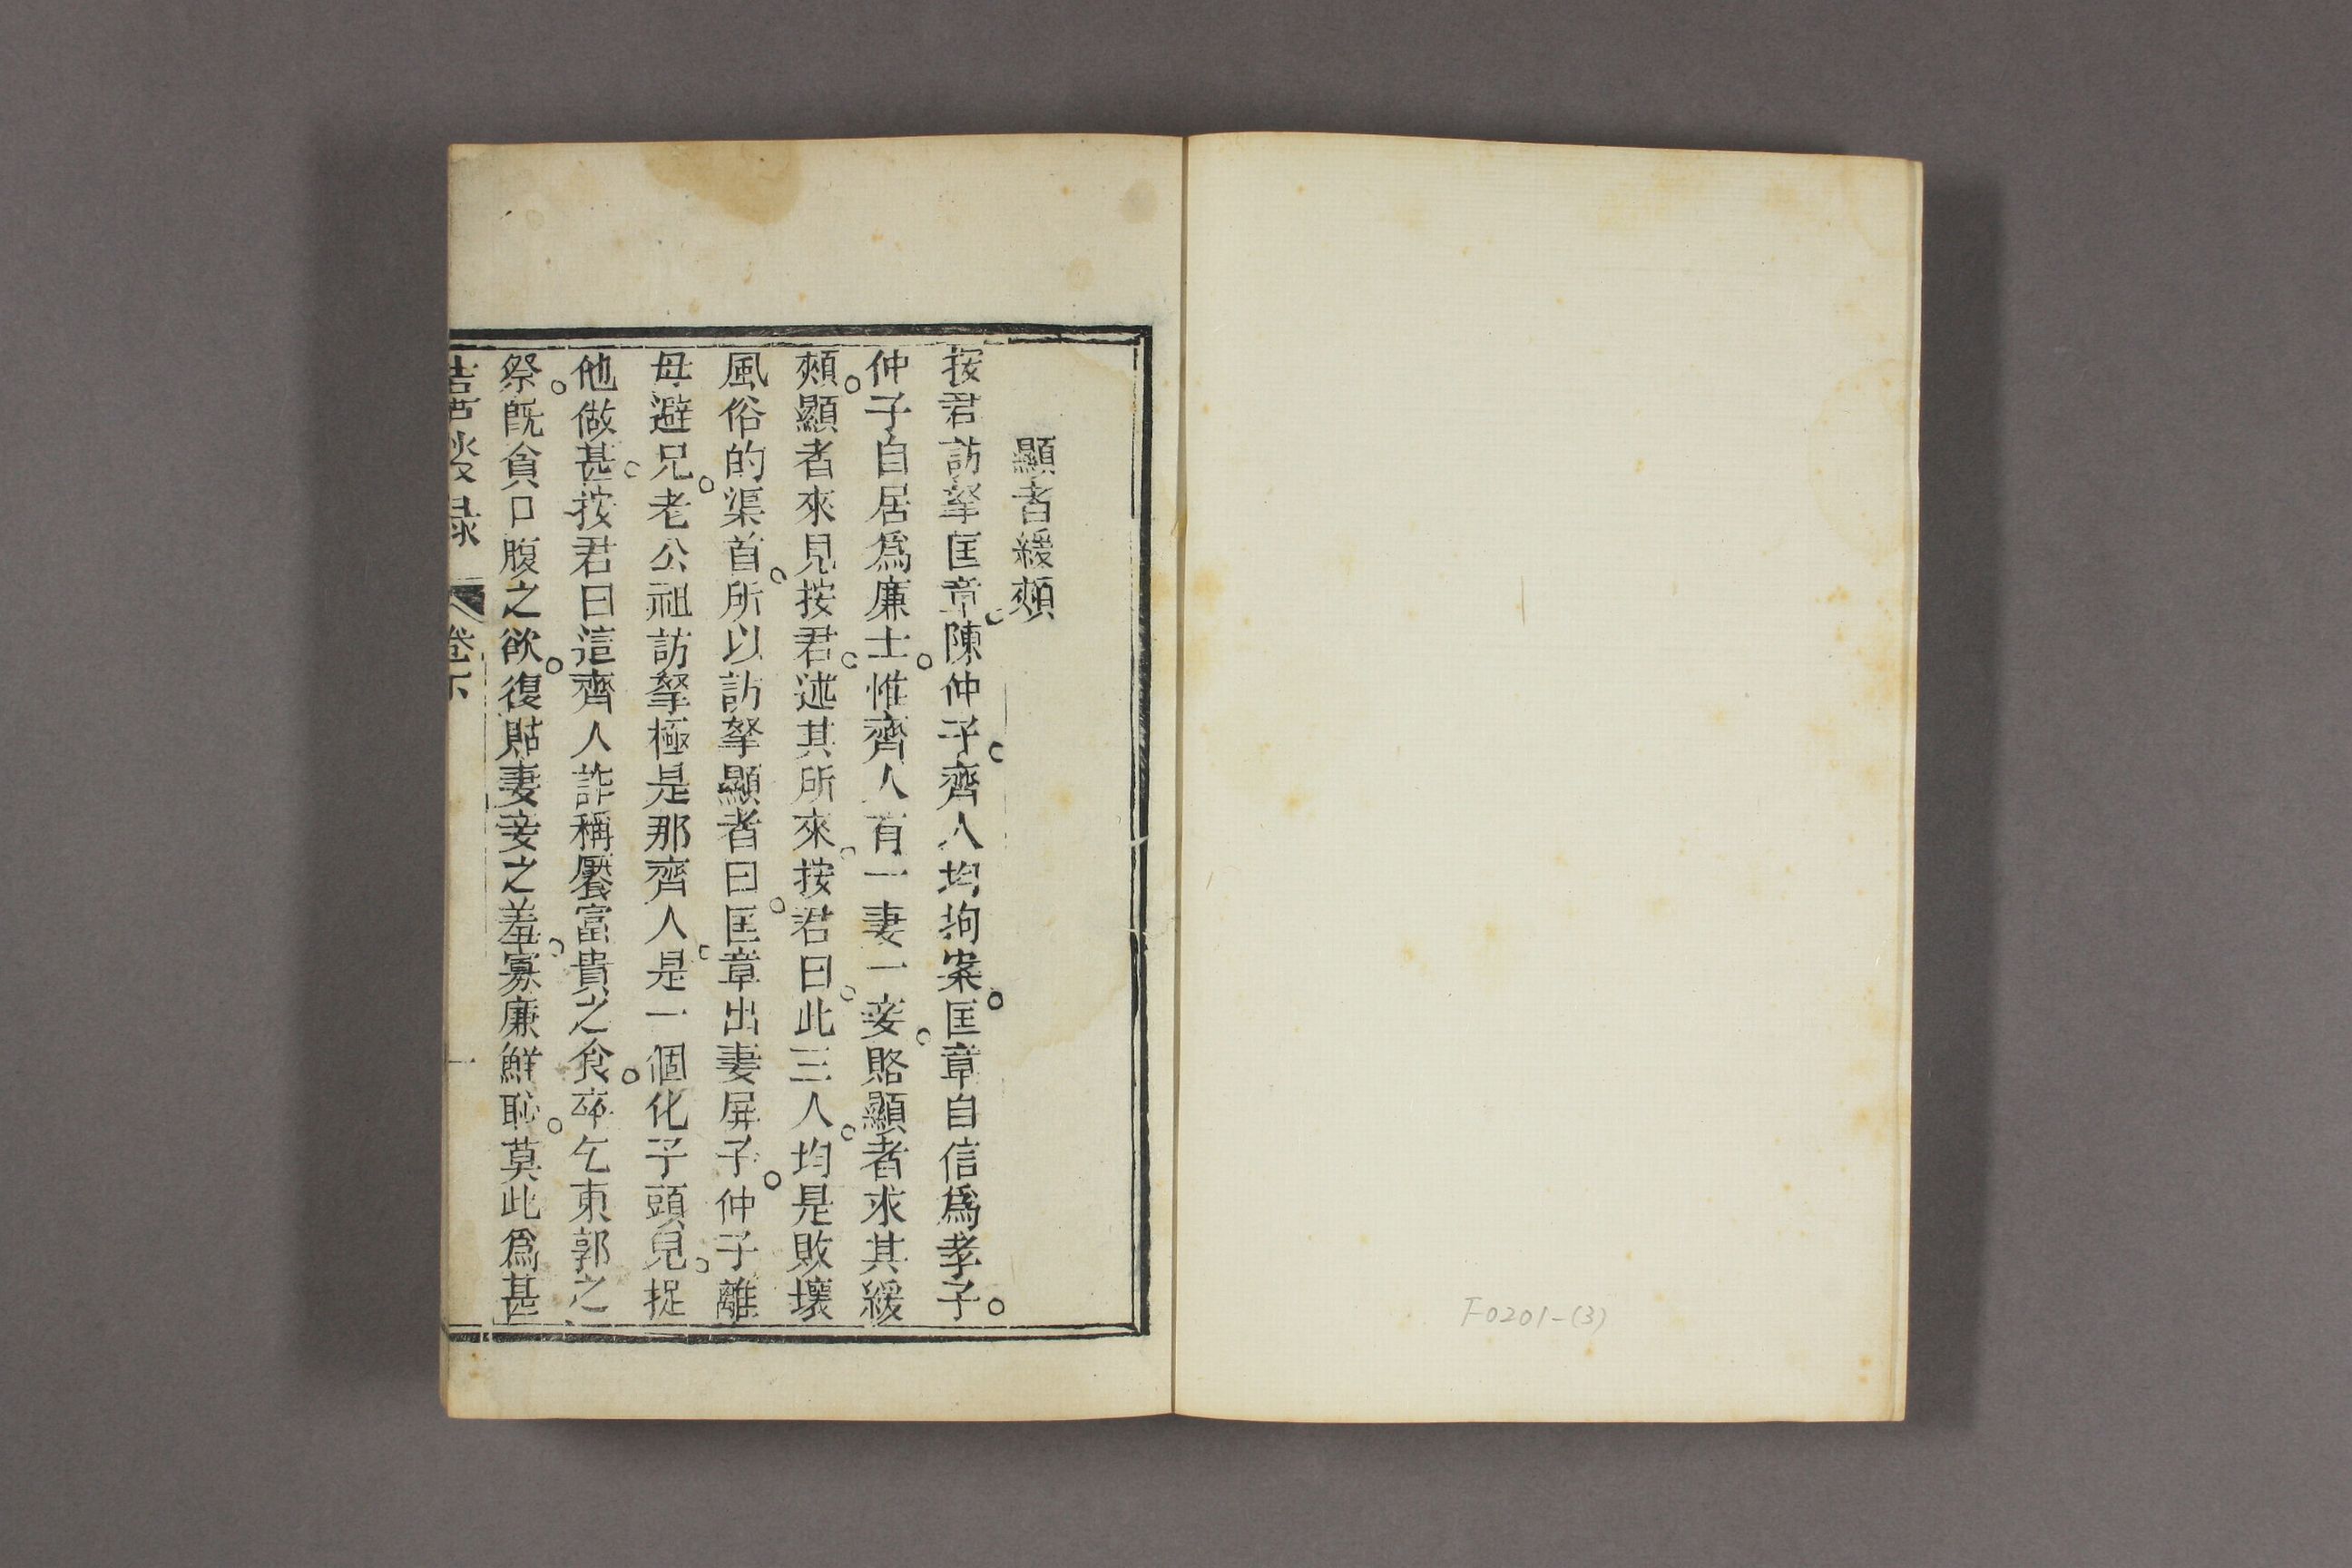 顯者緩頰
按君訪拏匡章陳仲子齊人均拘案匡章自信爲孝子
仲子自居爲廉士惟齊人有一妻一妾賂顯者求其緩
頰顯者來見按君述其所來按君曰此三人均是敗壞
風俗的渠首所以訪拏顯者曰匡章出妻屏子仲子離
母避兄老公祖訪拏極是那齊人是一個化子頭兒捉
他做甚按君曰這齊人詐稱饜富貴之食卒乞東郭之
祭既貪口腹之欲復貽妻妾之羞寡廉鮮恥莫此爲甚
卷下
一
F0201-(3)